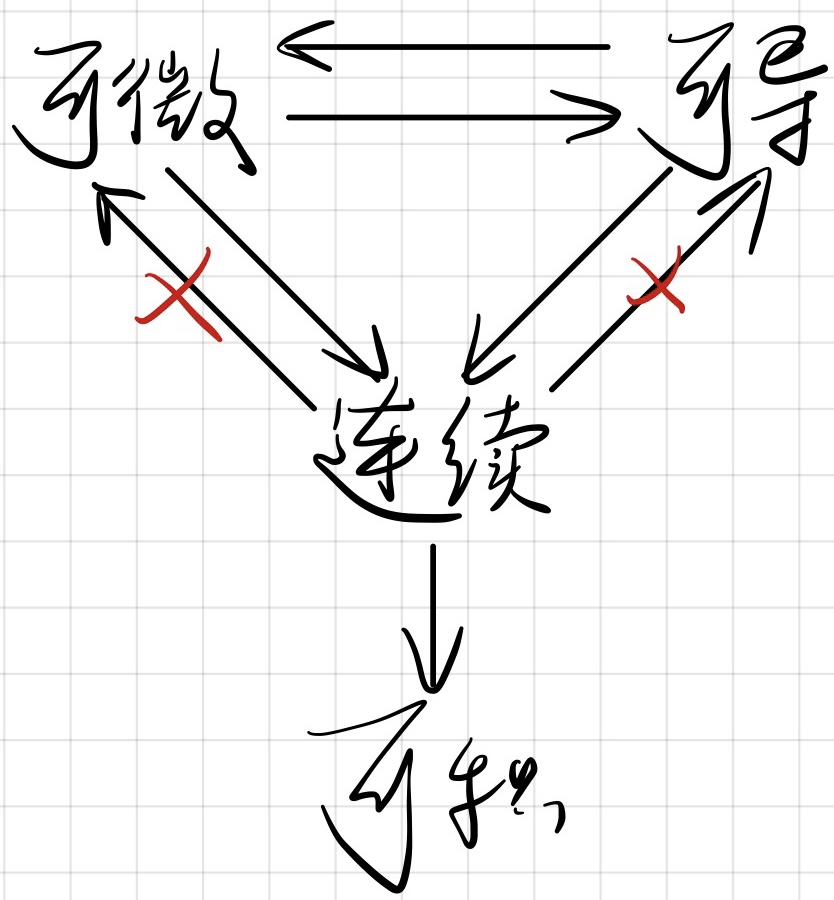 可微 可导
连续
可积